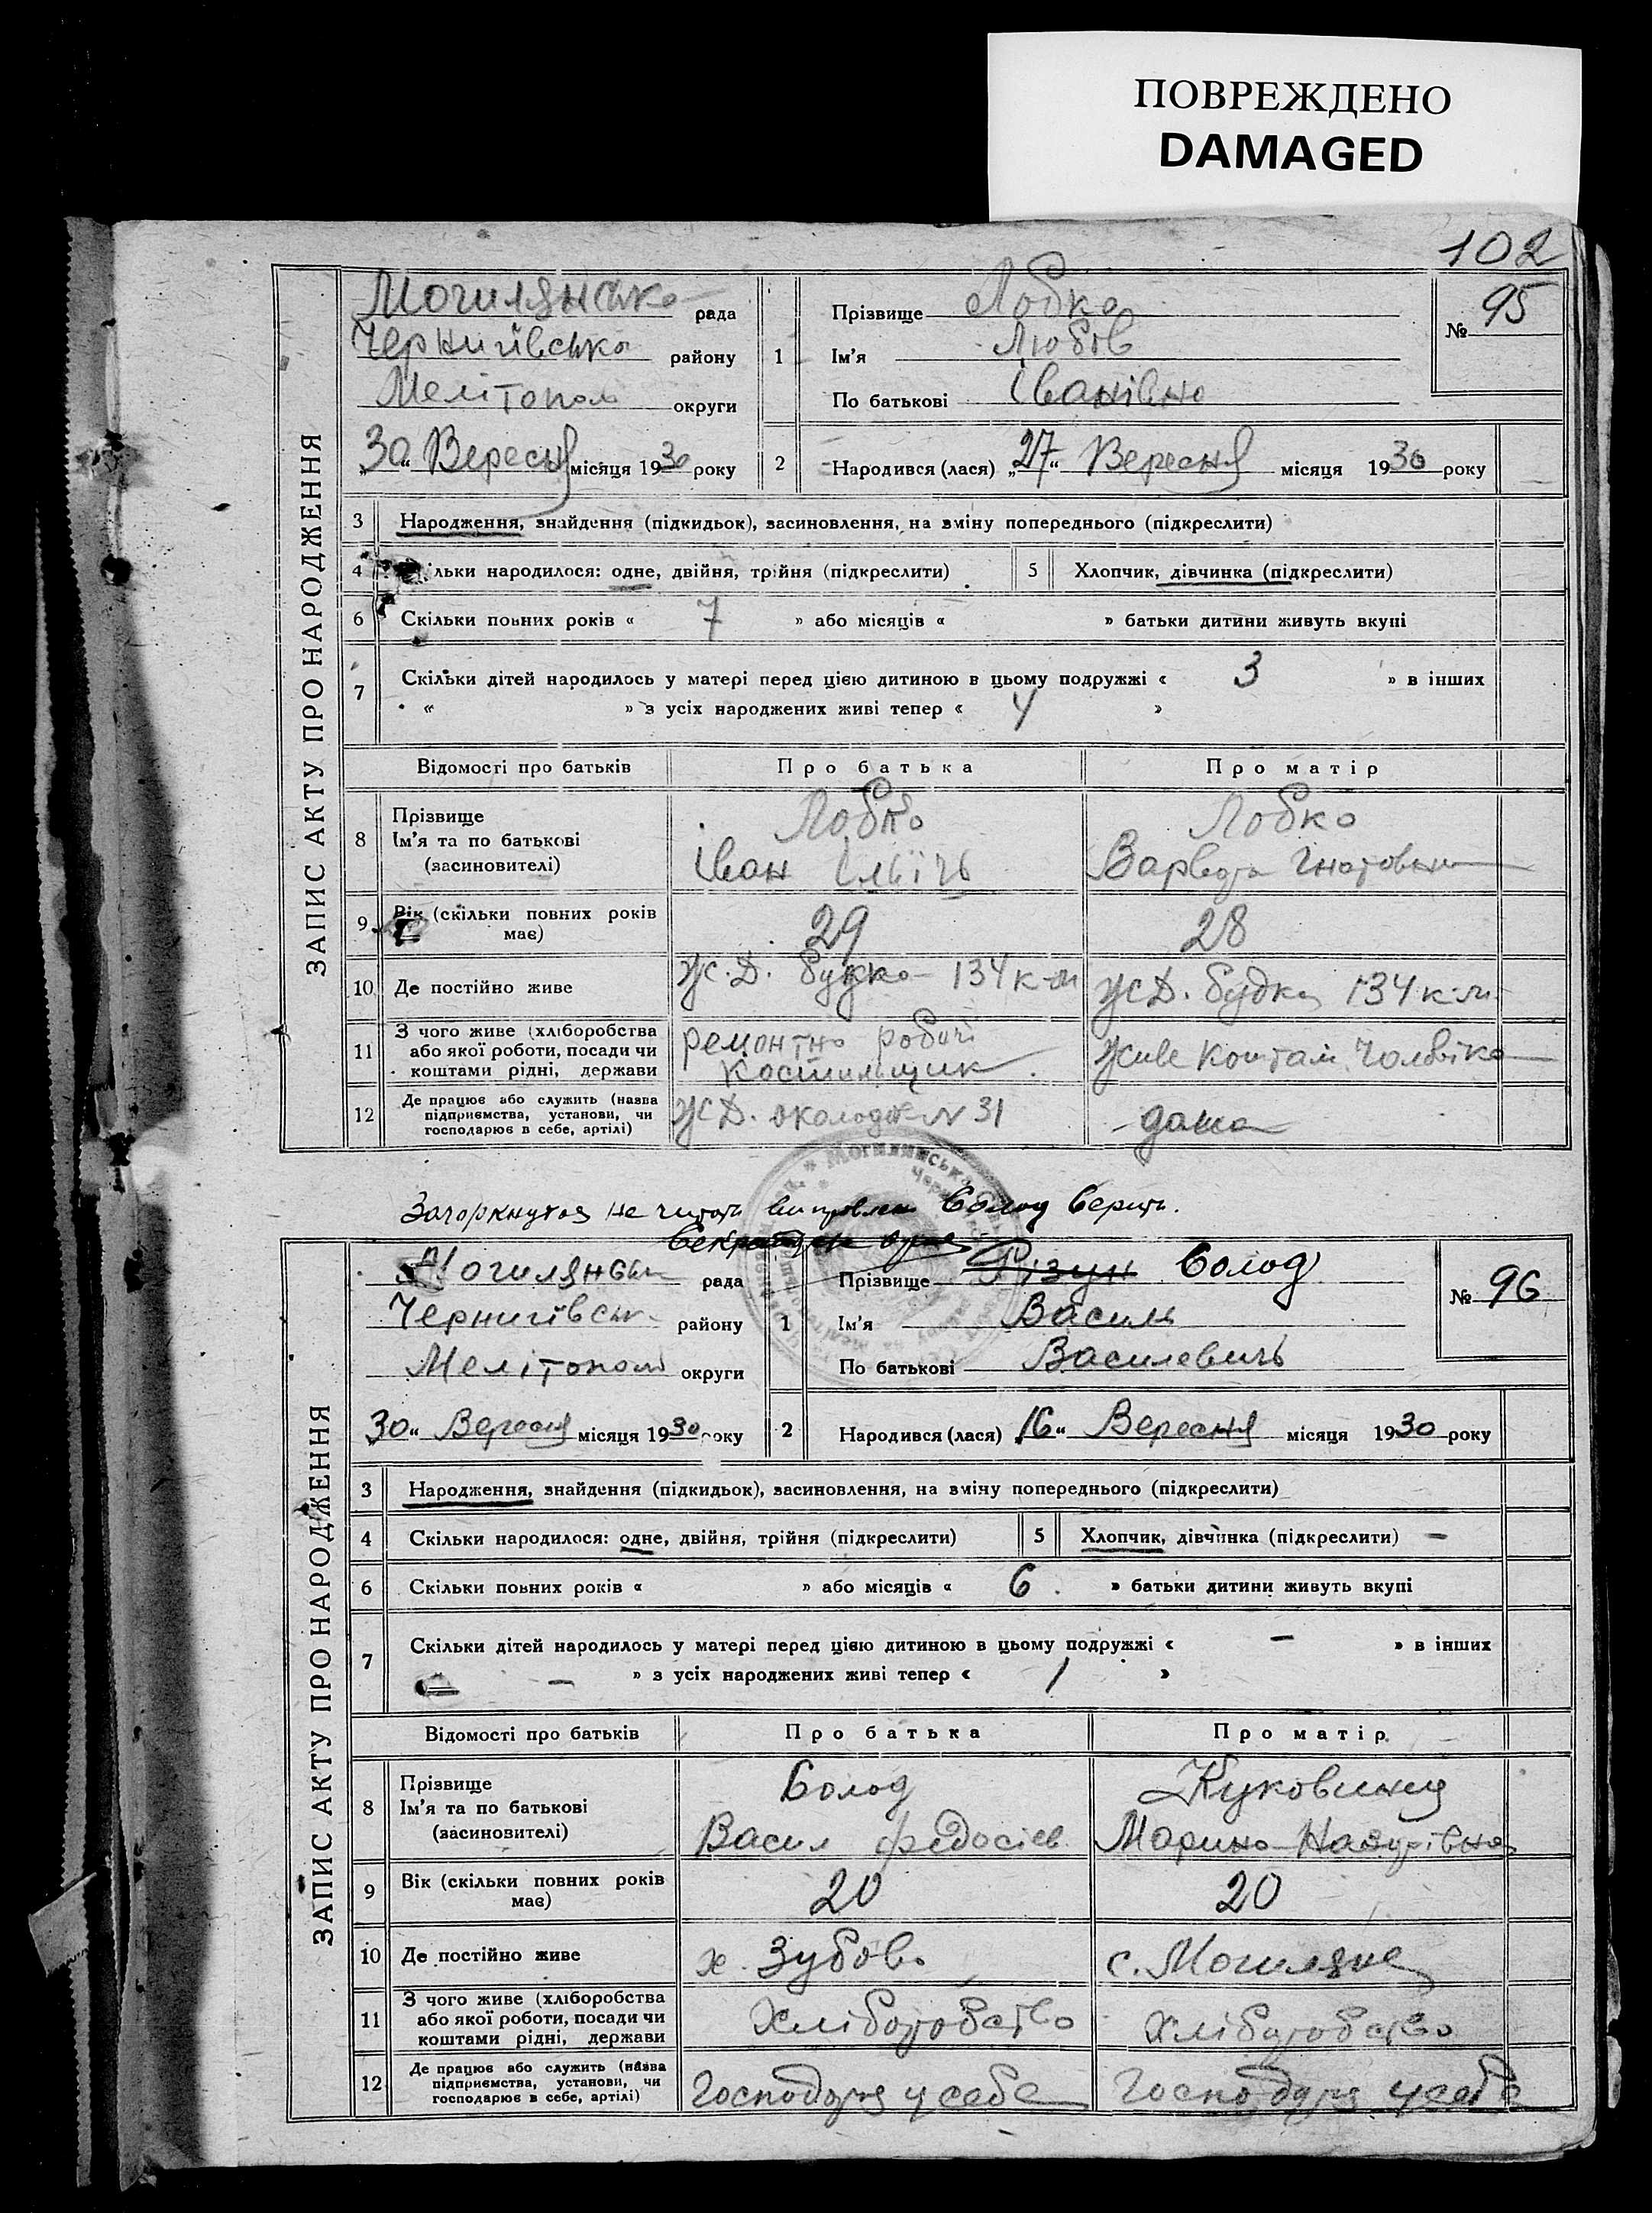 ПОВРЕЖДЕНО
DAMAGED
102
ЗАПИС АКТУ ПРО НАРОДЖЕННЯ
Могилянсько рада
Чернигівсько району
Мелітополь округи
„30“ Вересня місяця 1930 року
1
Прізвище Лобко
Ім'я Любов
По батькові Іванівно
№ 95
2 Народився (лася) „27“ Вересня місяця 1930 року
3 Народження, знайдення (підкидьок), засиновлення, на зміну попереднього (підкреслити)
4 льки народилося: одне, двійня, трійня (підкреслити)
5 Хлопчик, дівчинка (підкреслити)
6 Скільки повних років « 7 » або місяців « » батьки дитини живуть вкупі
7 Скільки дітей народилось у матері перед цією дитиною в цьому подружжі « 3 » в інших
« » з усіх народжених живі тепер « 4 »
Відомості про батьків Про батька Про матір
8 Прізвище Ім'я та по батькові (засиновителі)
Лобко Іван Ільїчь
Лобко Варвара Гнатовна
9 Вік (скільки повних років має) 29 28
10 Де постійно живе Ж.Д. будка 134 к-м ЖД. будка 134 к-м
11 З чого живе (хліборобства або якої роботи, посади чи коштами рідні, держави
ремонтно робочі костильщик
живе коштам чоловіка
12 Де працює або служить (назва підприємства, установи, чи господарює в себе, артілі)
ЖД. околодок N 31
дома
Зачоркнутоя не читать виправлен Болод верить.
ЗАПИС АКТУ ПРО НАРОДЖЕННЯ
Могилянськ рада
Чернигівськ району
Мелітополь округи
„30“ Вересня місяця 1930 року
1
Прізвище Різун Болод
Ім'я Василь
По батькові Василевичь
№ 96
2 Народився (лася) „16“ Вересня місяця 1930 року
3 Народження, знайдення (підкидьок), засиновлення, на зміну попереднього (підкреслити)
4 Скільки народилося: одне, двійня, трійня (підкреслити)
5 Хлопчик, дівчинка (підкреслити) –
6 Скільки повних років « » або місяців « 6 . » батьки дитини живуть вкупі
7 Скільки дітей народилось у матері перед цією дитиною в цьому подружжі « – » в інших
« – » з усіх народжених живі тепер « 1 »
Відомості про батьків Про батька Про матір
8 Прізвище Ім'я та по батькові (засиновителі)
Болод Васил Федосіев
Куковиця Марина
9 Вік (скільки повних років має) 20 20
10 Де постійно живе х. Зубово с. Могиляне
11 З чого живе (хліборобства або якої роботи, посади чи коштами рідні, держави
Хліборобство Хліборобство
12 Де працює або служить (назва підприємства, установи, чи господарює в себе, артілі)
Господаря у себе Господаря у себе